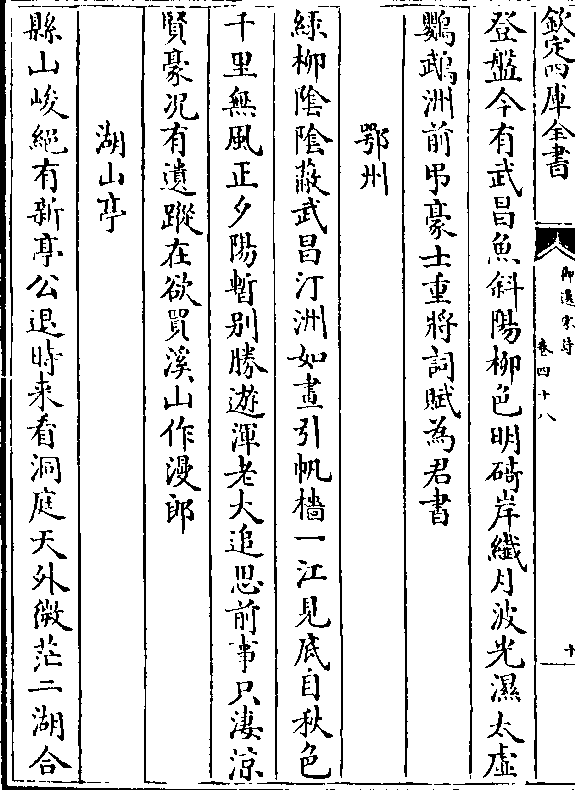 欽定四庫全書
御選宋詩
卷四十八
十
登盤今有武昌魚斜陽柳色明碕岸纖月波光濕太虛
鸚鵡洲前弔豪士重將詞賦為君書
鄂州
綠柳陰陰蔽武昌汀洲如畫引帆檣一江見底自秋色
千里無風正夕陽暫别勝遊渾老大追思前事只淒涼
賢豪况有遺蹤在欲買溪山作漫郎
湖山亭
縣山峻絕有新亭公退時来看洞庭天外微茫二湖合